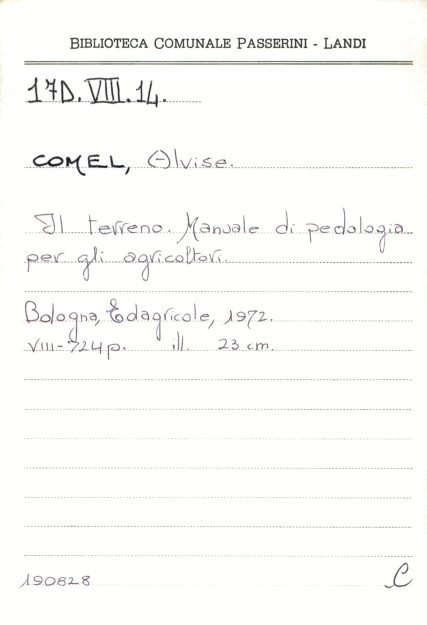 BIBLIOTECA COMUNALE PASSERINI - LANDI
17D.VIII.14.
COMEL, Alvise.
Il terreno. Manuale di pedologia
per gli agricoltori.
Bologna, Edagricole, 1972.
VIII-724 p. ill. 23 cm.
190828 C